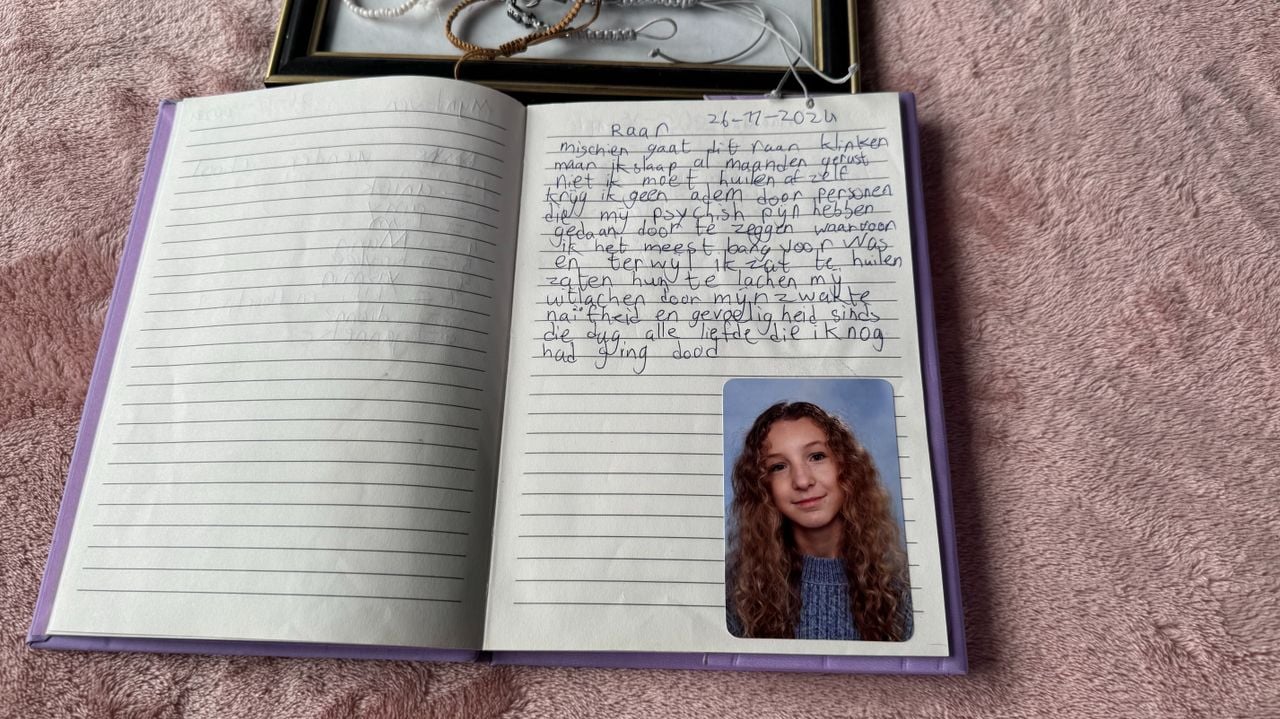 26-11-2024
Raar
mischien gaat dit raar klinken
maar ik slaap al maanden gerust
niet ik moet huilen of zelf
krijg ik geen adem door personen
die mij psychish pijn hebben
gedaan door te zeggen waarvoor
ik het meest bang voor was
en terwijl ik zat te huilen
zaten hun te lachen mij
uitlachen door mijn zwakte
naïfheid en gevoeligheid sinds
die dag alle liefde die ik nog
had ging dood